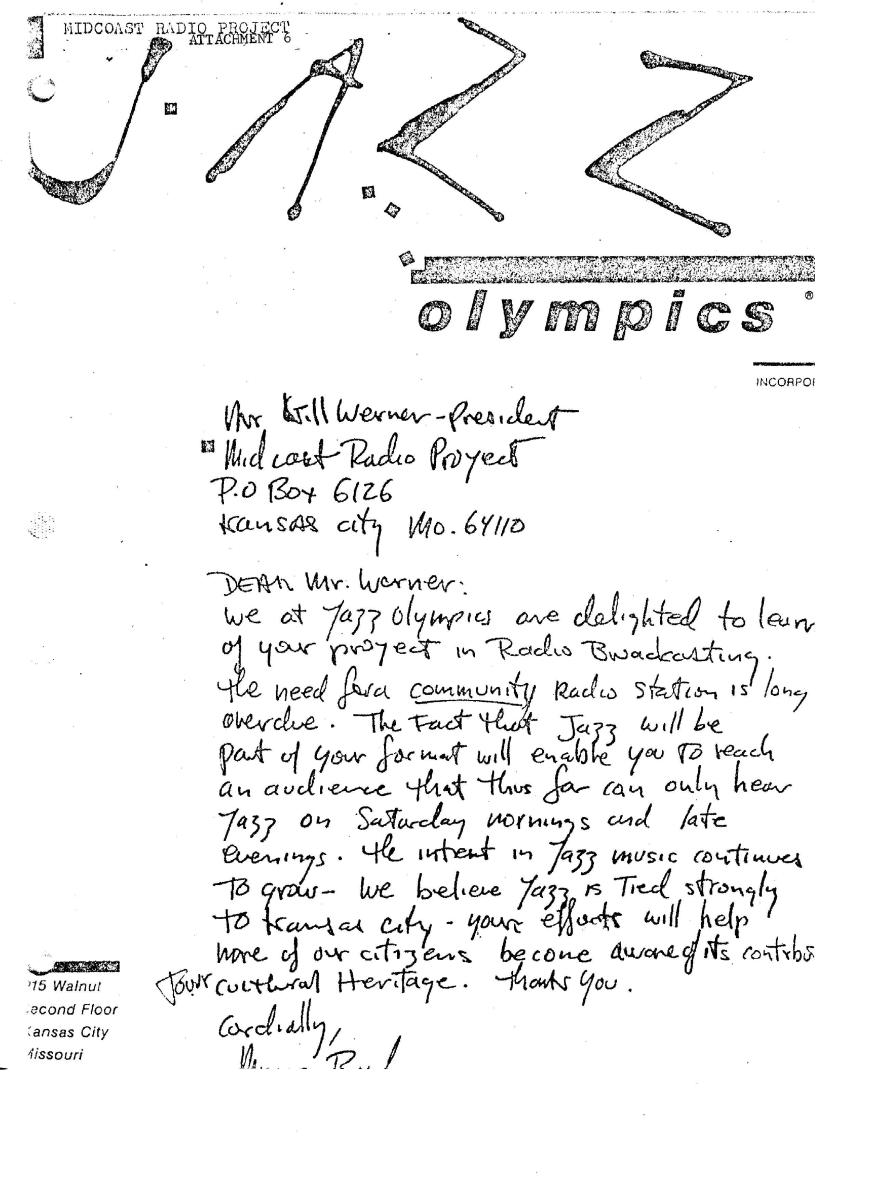 MIDCOAST RADIO PROJECT
ATTACHMENT 6
JAZZ
olympics ®
INCORPO
Mr Will Werner-President
Midcoast Radio Proyect
P.O Box 6126
Kansas city Mo. 64110
DEAR Mr. Werner:
We at Jazz Olympics are delighted to learn
of your proyect in Radio Broadcasting.
the need for a community Radio Station is long
overdue. The Fact that Jazz will be
part of your format will enable you to reach
an audience that thus far can only hear
Jazz on Saturday mornings and late
Evenings. the interest in Jazz music continues
To grow- We believe Jazz is Tied strongly
to Kansas city - your efforts will help
more of our citizens become aware of its contribu
to our cultural Heritage. Thanks You.
Cordially,
15 Walnut
econd Floor
ansas City
issouri